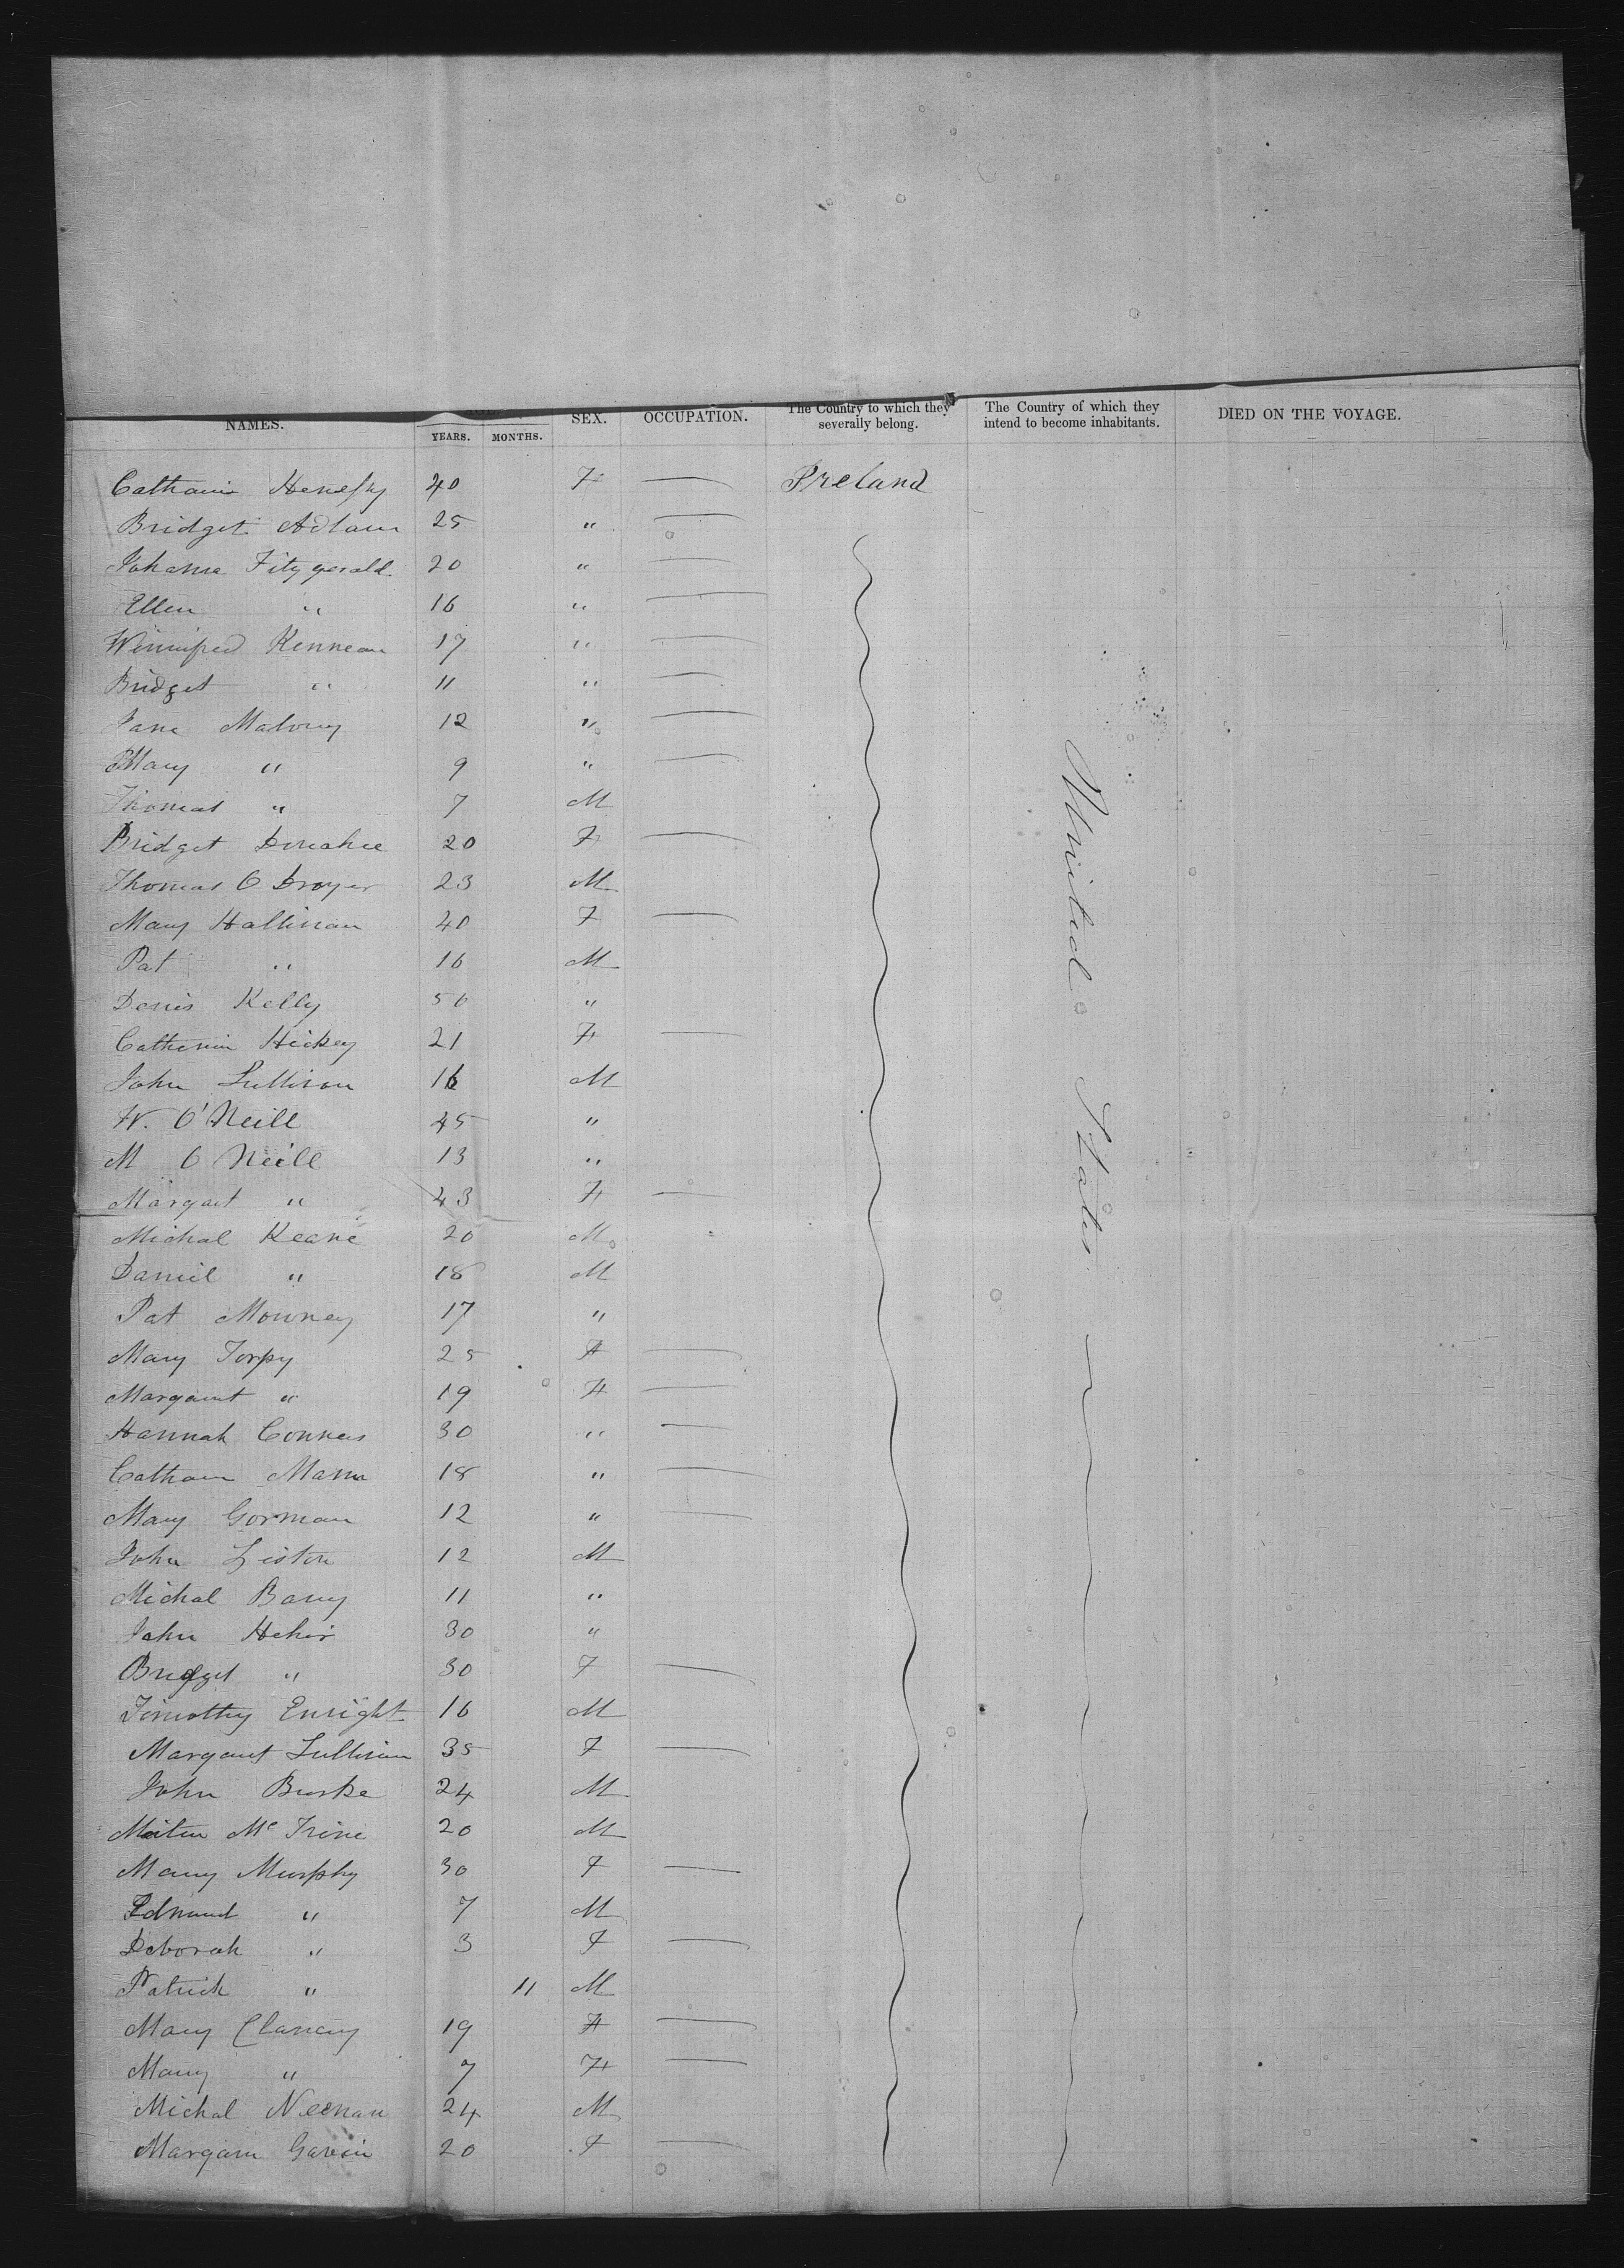 NAMES. YEARS. MONTHS. SEX. OCCUPATION. The Country to which they severally belong. The Country of which they intend to become inhabitants. DIED ON THE VOYAGE.
40 F — Ireland
Bridget 25 " —
Johanna Fitzgerald 20 " —
Ellen " 16 " —
Winnifred Kennean 17 " —
Bridget " 11 " —
Jane Malony 12 " —
Mary " 9 " —
Thomas " 7 M
Bridget Donahue 20 F —
Thomas O Droyer 23 M
Mary Hallinan 40 F —
Pat " 16 M
Denis Kelly 50 "
Catherin Hickey 21 F —
John Sullivan 16 M
W. O'Neill 45 "
M O Neill 13 "
Margaet " 43 F —
Michal Keane 20 M
Daniel " 18 M
Pat Mowney 17 "
Mary Torpy 25 F —
Margaret " 19 F —
Hannah Conners 30 " —
18 " —
Mary Gorman 12 " —
John Liston 12 M
Michal Barry 11 "
John Hehir 30 "
Bridget " 30 F —
Timothy Enright 16 M
Margaret Sullivan 35 F —
John Burke 24 M
20 M
Mary Murphy 30 F —
Edmund " 7 M
Deborah " 3 F —
Patrick " 11 M
Mary Clancy 19 F —
Mary " 7 F —
Michal Neenan 24 M
Gavin 20 F —
United States